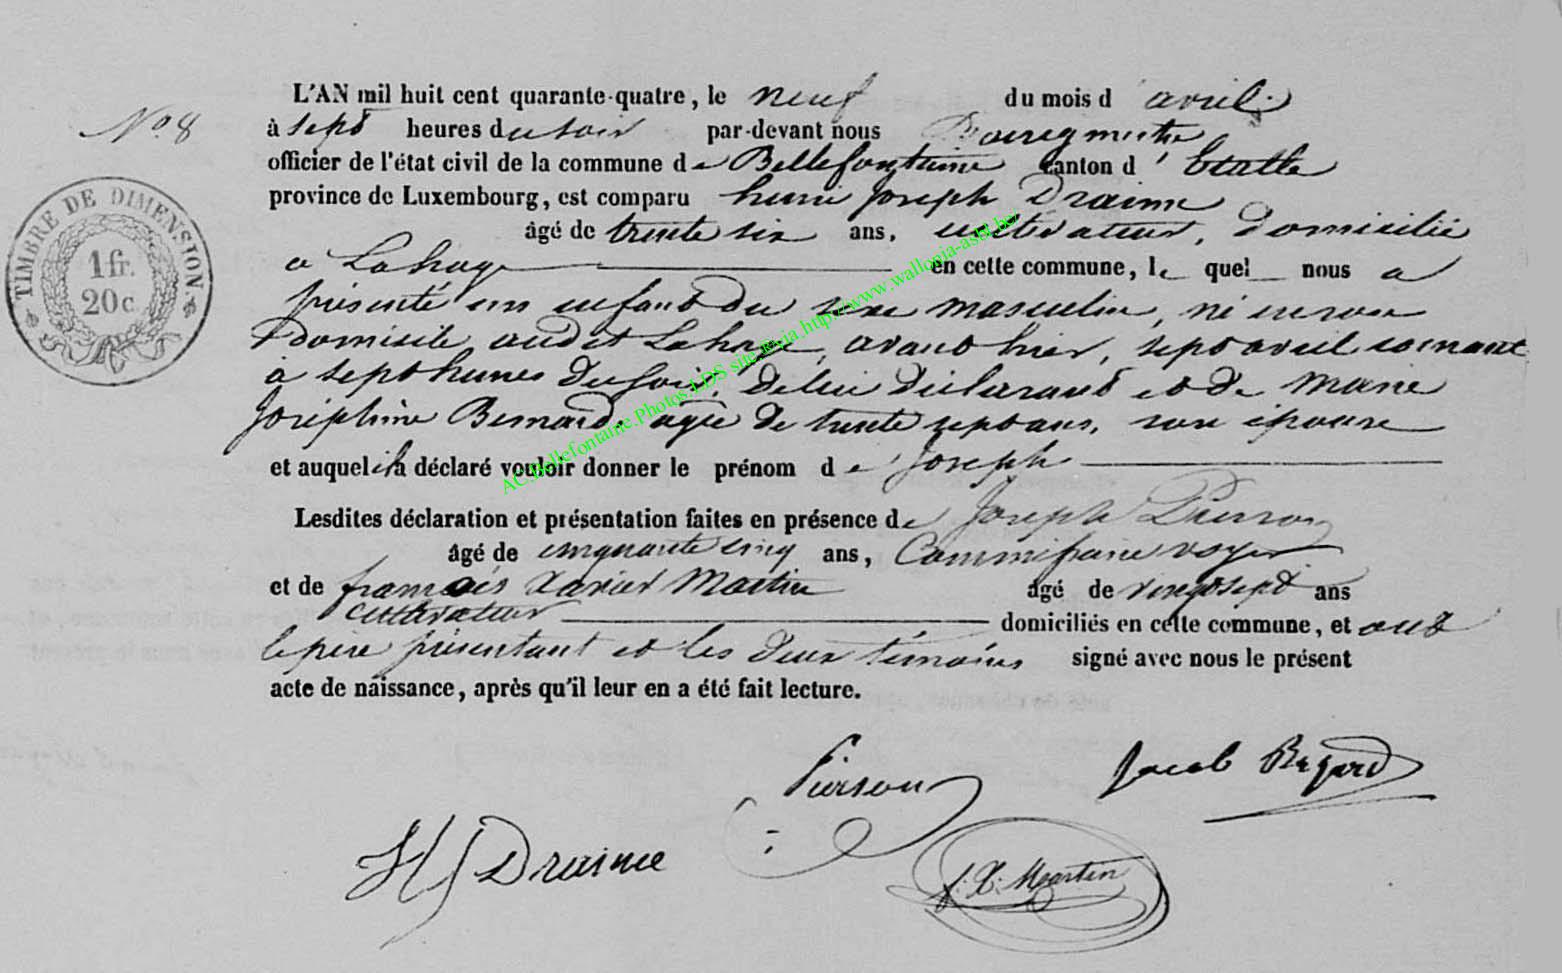 L'AN mil huit cent quarante-quatre, le neuf du mois d'avril
N° 8
à sept heures du soir par-devant nous Bourgmestre
officier de l'état civil de la commune de Bellefontaine canton d'Etalle
province de Luxembourg, est comparu henri Joseph Draime
âgé de trente six ans, cultivateur, domicilié
a Lahage en cette commune, lequel nous a
présenté un enfant du sexe masculin, né en son
domicile audit Lahage, avant hier, sept avril courant
à sept heures du soir, de lui déclarant et de Marie
Joséphine Bernard, agée de trente sept ans, son épouse
et auquel il a déclaré vouloir donner le prénom de Joseph
Lesdites déclaration et présentation faites en présence de Joseph Pierson
âgé de cinquante cinq ans, Commissaire voyer
et de francois Xavier Martin âgé de vingt sept ans
cultivateur domiciliés en cette commune, et ont
le père présentant et les deux témoins signé avec nous le présent
acte de naissance, après qu'il leur en a été fait lecture.
TIMBRE DE DIMENSION
1 fr.
20 c.
AC.Bellefontaine.Photos.LDS site.Raia.http://www.wallonia-asbl.be/
Pierson
Jacob
HJ Draime
f. X. Martin